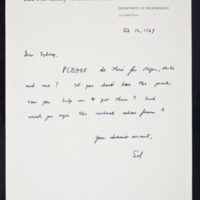 DEPARTMENT OF MICROBIOLOGY
Feb 12, 1968
Dear Sydney,
PLEASE do them for Roger,
and me! If you don't have the
can you help us to get them? And
would you sign the enclosed release forms?
Your obedient servant,
Sol